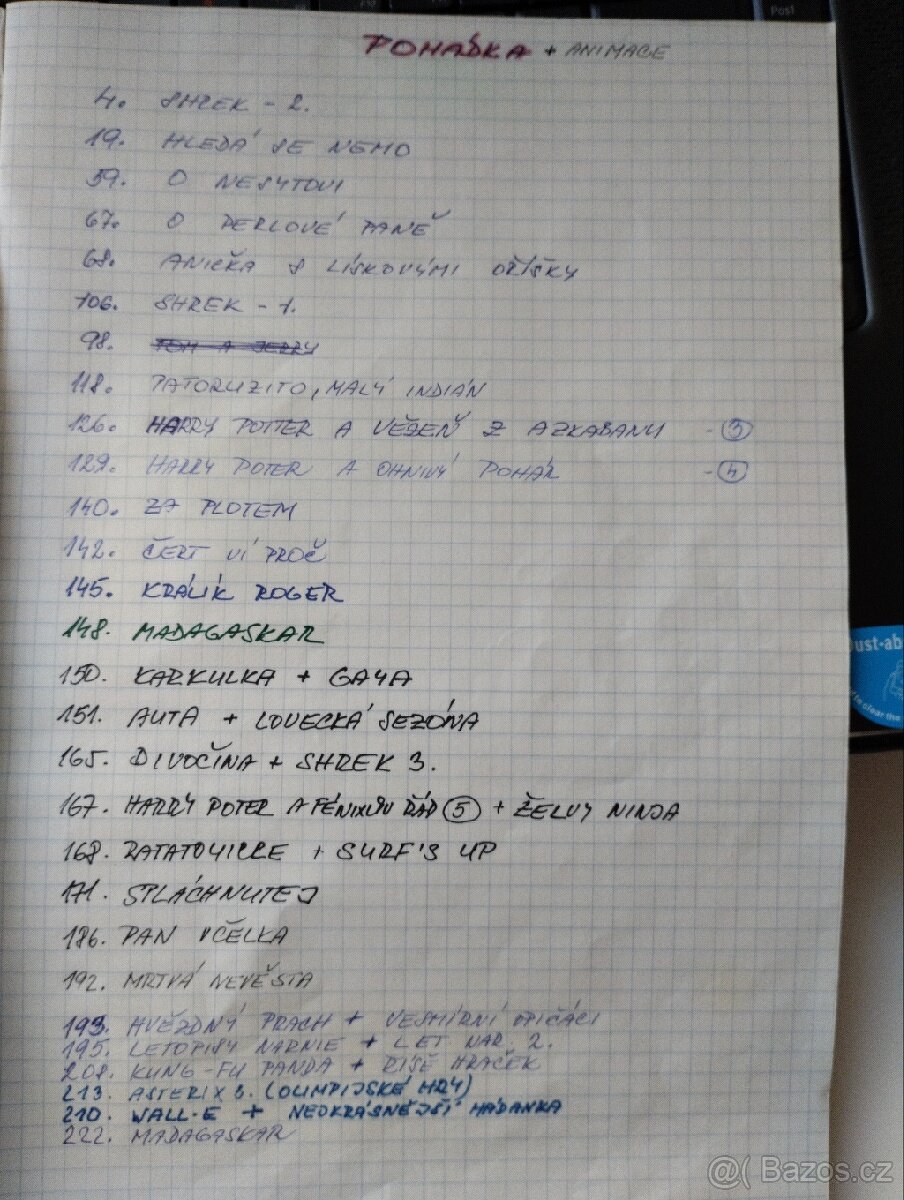 Post
POHÁDKA + ANIMACE
4. SHREK - 2.
19. HLEDÁ SE NEMO
59. O NESYTOVI
67. O PERLOVÉ PANĚ
68. ANIČKA S LÍSKOVÝMI OŘÍŠKY
106. SHREK - 1.
98. TOM A JERRY
118. PATORUZITO, MALÝ INDIÁN
126. HARRY POTTER A VĚZEŇ Z AZKABANU - 3
129. HARRY POTER A OHNIVÝ POHÁR - 4
140. ZA PLOTEM
142. ČERT VÍ PROČ
145. KRÁLÍK ROGER
148. MADAGASKAR
150. KARKULKA + GAYA
151. AUTA + LOVECKÁ SEZÓNA
165. DIVOČINA + SHREK 3.
167. HARRY POTER A FÉNIXŮV ŘÁD 5 + ŽELVY NINJA
168. RATATOUILLE + SURF'S UP
171. SPLÁCHNUTEJ
186. PAN VČELKA
192. MRTVÁ NEVĚSTA
193. HVĚZDNÝ PRACH + VESMÍRNÍ OPIČÁCI
195. LETOPISY NARNIE + LET VAR. 2.
208. KUNG-FU PANDA + ŘÍŠE HRAČEK
213. ASTERIX 3. (OLIMPIJSKÉ HRY)
210. WALL-E + NEJKRÁSNĚJŠÍ HÁDANKA
222. MADAGASKAR
ust-ab
clear the
@( Bazos.cz